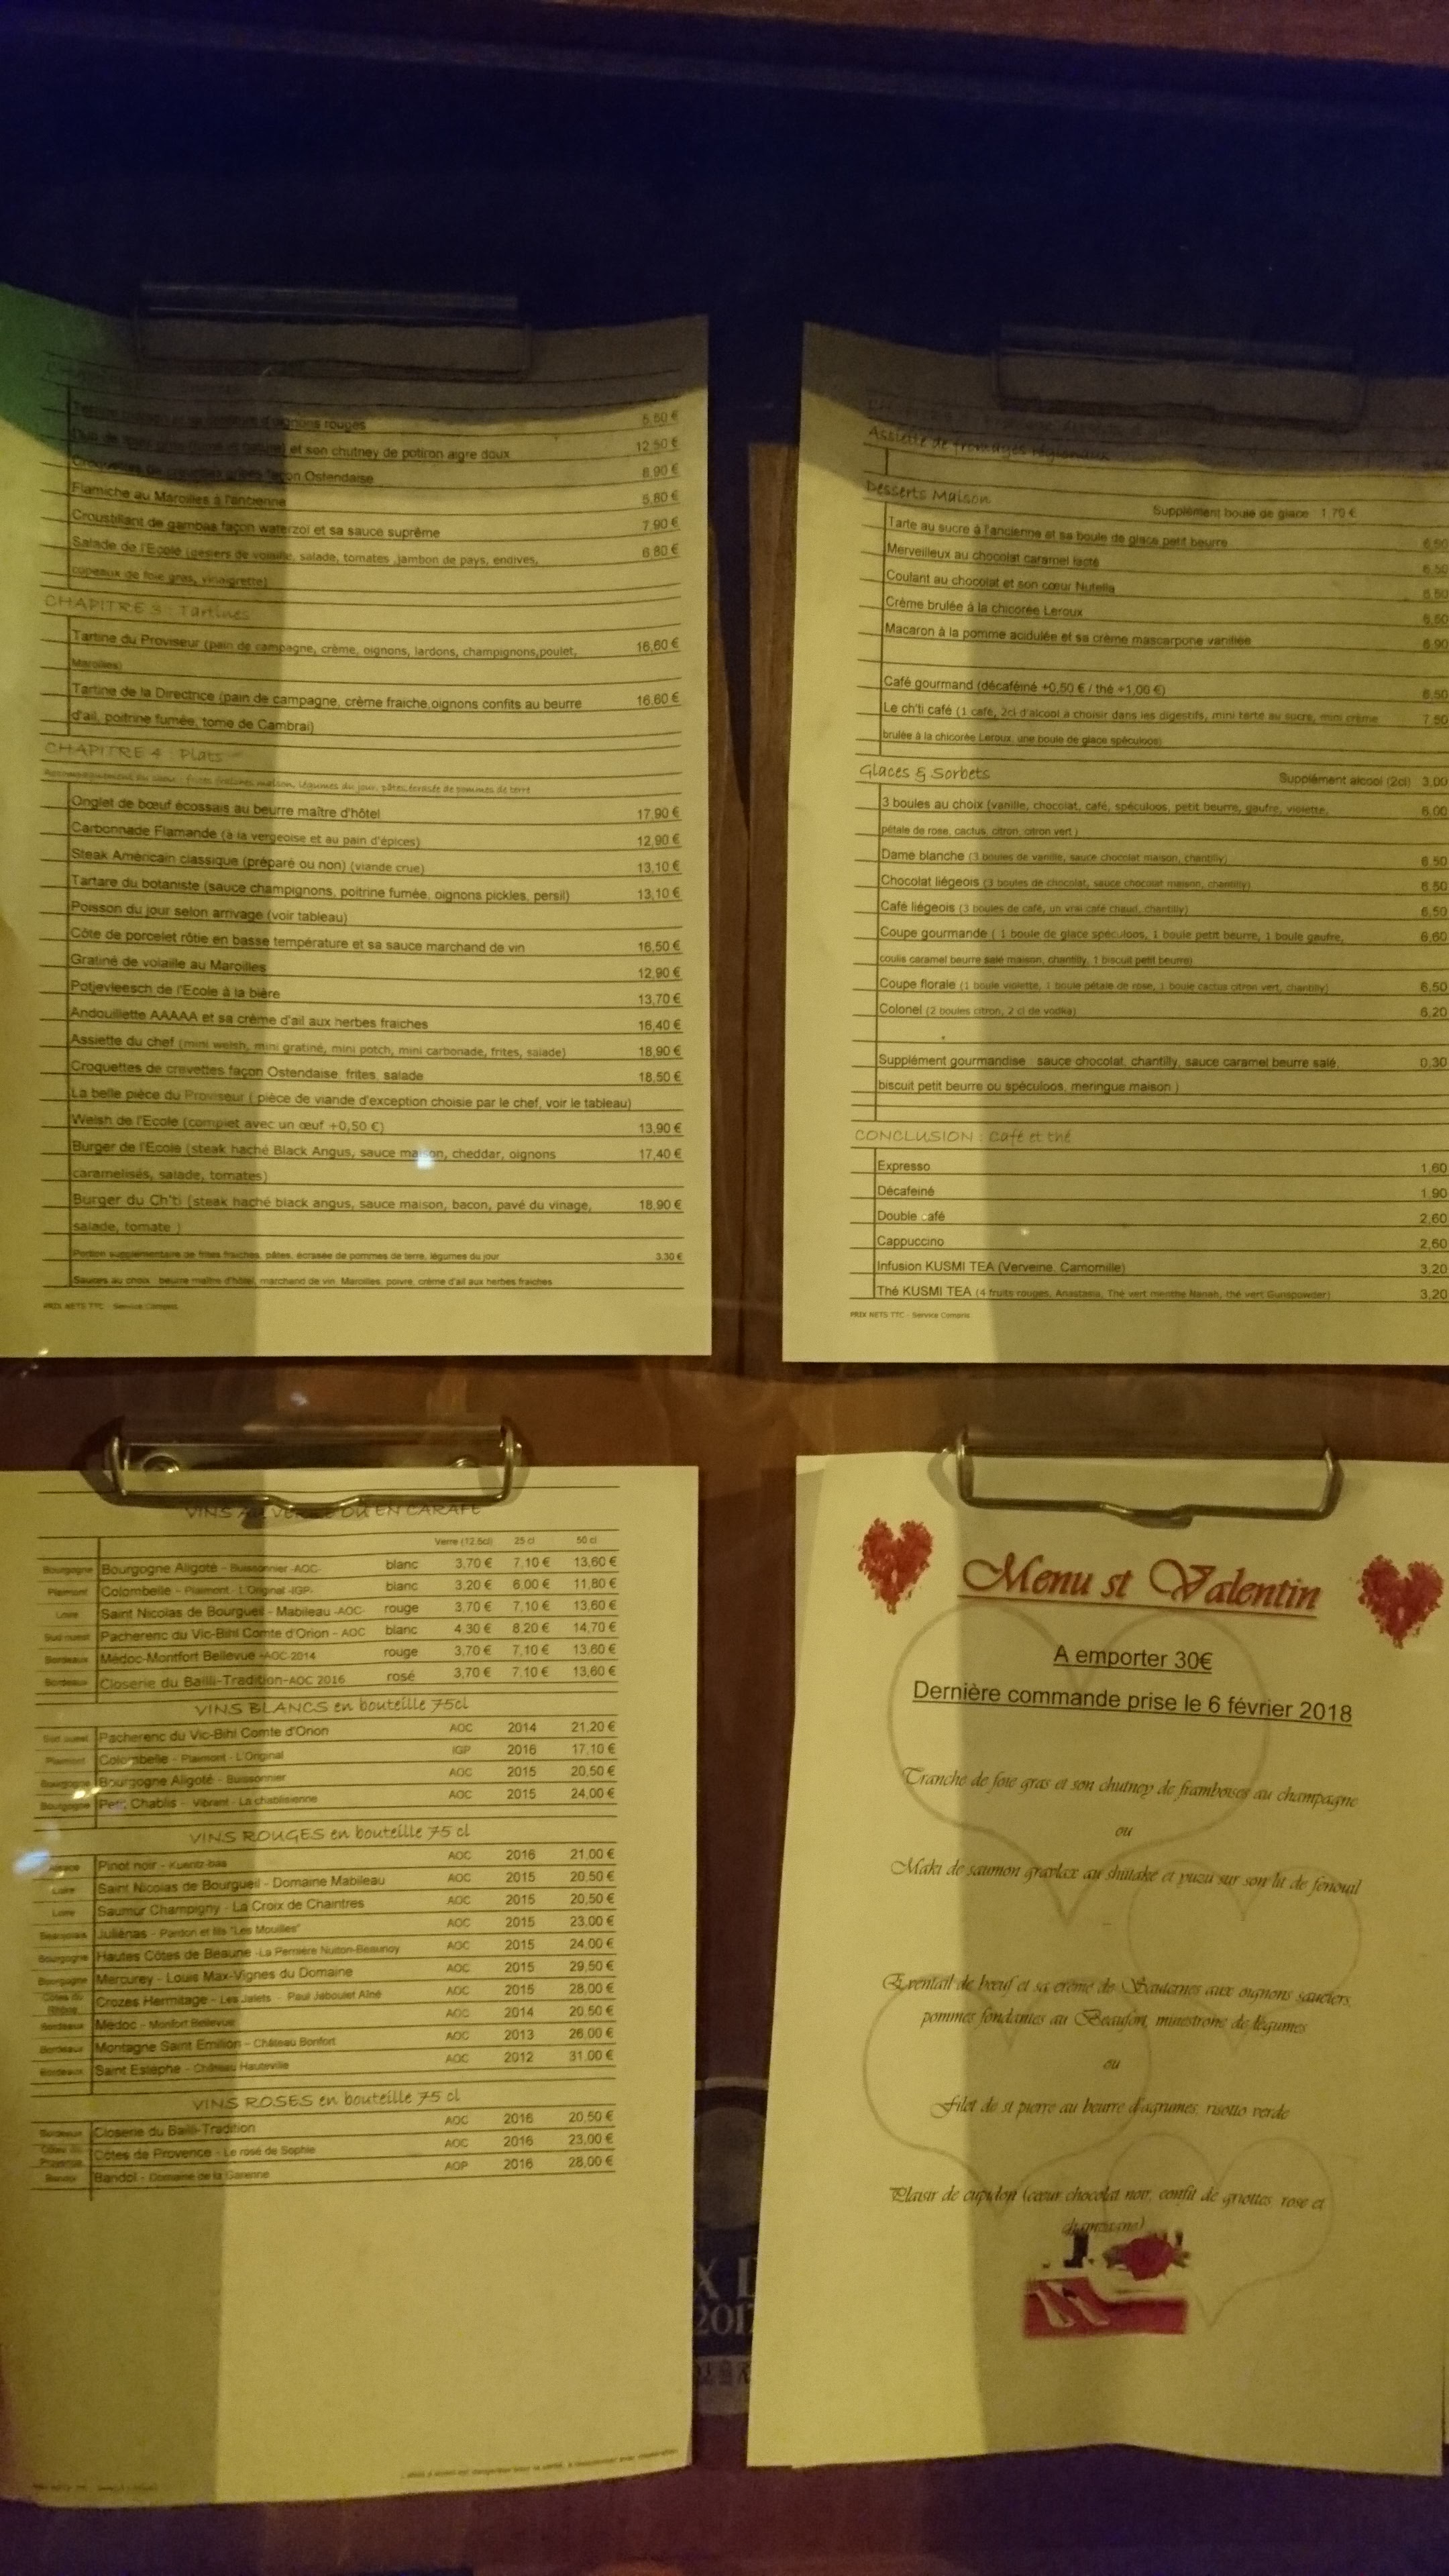 d'oignons rouges 5,50 €
et son chutney de potiron aigre doux 12,50 €
Croquettes de crevettes grises façon Ostendaise 8,90 €
Flamiche au Maroilles à l'ancienne 5,80 €
Croustillant de gambas façon waterzoï et sa sauce suprême 7,90 €
Salade de l'Ecole (gésiers de volaille, salade, tomates ,jambon de pays, endives, 6,80 €
copeaux de foie gras, vinaigrette)
CHAPITRE 3 : Tartines
Tartine du Proviseur (pain de campagne, crème, oignons, lardons, champignons,poulet, 16,60 €
Maroilles)
Tartine de la Directrice (pain de campagne, crème fraiche,oignons confits au beurre 16,60 €
d'ail, poitrine fumée, tome de Cambrai)
CHAPITRE 4 : Plats
Accompagnement au choix : frites fraîches maison, légumes du jour, pâtes, écrasée de pommes de terre
Onglet de bœuf écossais au beurre maître d'hôtel 17,90 €
Carbonnade Flamande (à la vergeoise et au pain d'épices) 12,90 €
Steak Américain classique (préparé ou non) (viande crue) 13,10 €
Tartare du botaniste (sauce champignons, poitrine fumée, oignons pickles, persil) 13,10 €
Poisson du jour selon arrivage (voir tableau)
Côte de porcelet rôtie en basse température et sa sauce marchand de vin 16,50 €
Gratiné de volaille au Maroilles 12,90 €
Potjevleesch de l'Ecole à la bière 13,70 €
Andouillette AAAAA et sa crème d'ail aux herbes fraiches 16,40 €
Assiette du chef (mini welsh, mini gratiné, mini potch, mini carbonade, frites, salade) 18,90 €
Croquettes de crevettes façon Ostendaise, frites, salade 18,50 €
La belle pièce du Proviseur ( pièce de viande d'exception choisie par le chef, voir le tableau)
Welsh de l'Ecole (complet avec un œuf +0,50 €) 13,90 €
Burger de l'Ecole (steak haché Black Angus, sauce maison, cheddar, oignons 17,40 €
caramelisés, salade, tomates)
Burger du Ch'ti (steak haché black angus, sauce maison, bacon, pavé du vinage, 18,90 €
salade, tomate )
Portion supplémentaire de frites fraiches, pâtes, écrasée de pommes de terre, légumes du jour 3,30 €
Sauces au choix : beurre maître d'hôtel, marchand de vin, Maroilles, poivre, crème d'ail aux herbes fraiches
PRIX NETS TTC - Service Compris
Assiette de fromages régionaux
Desserts Maison
Supplément boule de glace 1,70 €
Tarte au sucre à l'ancienne et sa boule de glace petit beurre 6,50
Merveilleux au chocolat caramel lacté 6,50
Coulant au chocolat et son cœur Nutella 6,50
Crème brulée à la chicorée Leroux 6,50
Macaron à la pomme acidulée et sa crème mascarpone vanillée 6,90
Café gourmand (décaféiné +0,50 € / thé +1,00 €) 6,50
Le ch'ti café (1 café, 2cl d'alcool à choisir dans les digestifs, mini tarte au sucre, mini crème 7,50
brulée à la chicorée Leroux, une boule de glace spéculoos)
Glaces & Sorbets Supplément alcool (2cl) 3,00
3 boules au choix (vanille, chocolat, café, spéculoos, petit beurre, gaufre, violette, 6,00
pétale de rose, cactus, citron, citron vert )
Dame blanche (3 boules de vanille, sauce chocolat maison, chantilly) 6,50
Chocolat liégeois (3 boules de chocolat, sauce chocolat maison, chantilly) 6,50
Café liégeois (3 boules de café, un vrai café chaud, chantilly) 6,50
Coupe gourmande ( 1 boule de glace spéculoos, 1 boule petit beurre, 1 boule gaufre, 6,60
coulis caramel beurre salé maison, chantilly, 1 biscuit petit beurre)
Coupe florale (1 boule violette, 1 boule pétale de rose, 1 boule cactus citron vert, chantilly) 6,50
Colonel (2 boules citron, 2 cl de vodka) 6,20
Supplément gourmandise : sauce chocolat, chantilly, sauce caramel beurre salé, 0,30
biscuit petit beurre ou spéculoos, meringue maison )
CONCLUSION : Café et thé
Expresso 1,60
Décafeiné 1,90
Double café 2,60
Cappuccino 2,60
Infusion KUSMI TEA (Verveine, Camomille) 3,20
Thé KUSMI TEA (4 fruits rouges, Anastasia, Thé vert menthe Nanah, thé vert Gunspowder) 3,20
PRIX NETS TTC - Service Compris
VINS AU VERRE OU EN CARAFE
Verre (12,5cl) 25 cl 50 cl
Bourgogne Bourgogne Aligoté - Buissonnier -AOC- blanc 3,70 € 7,10 € 13,60 €
Plaimont Colombelle - Plaimont - L'Original -IGP- blanc 3,20 € 6,00 € 11,80 €
Loire Saint Nicolas de Bourgueil - Mabileau -AOC- rouge 3,70 € 7,10 € 13,60 €
Sud ouest Pacherenc du Vic-Bihl Comte d'Orion - AOC blanc 4,30 € 8,20 € 14,70 €
Bordeaux Médoc-Montfort Bellevue -AOC 2014 rouge 3,70 € 7,10 € 13,60 €
Bordeaux Closerie du Bailli-Tradition-AOC 2016 rosé 3,70 € 7,10 € 13,60 €
VINS BLANCS en bouteille 75cl
Sud ouest Pacherenc du Vic-Bihl Comte d'Orion AOC 2014 21,20 €
Plaimont Colombelle - Plaimont - L'Original IGP 2016 17,10 €
Bourgogne Bourgogne Aligoté - Buissonnier AOC 2015 20,50 €
Bourgogne Petit Chablis - Vibrant - La chablisienne AOC 2015 24,00 €
VINS ROUGES en bouteille 75 cl
Alsace Pinot noir - Kuentz-bas AOC 2016 21,00 €
Loire Saint Nicolas de Bourgueil - Domaine Mabileau AOC 2015 20,50 €
Loire Saumur Champigny - La Croix de Chaintres AOC 2015 20,50 €
Beaujolais Juliénas - Pardon et fils "Les Mouilles" AOC 2015 23,00 €
Bourgogne Hautes Côtes de Beaune -La Perrière Nuiton-Beaunoy AOC 2015 24,00 €
Bourgogne Mercurey - Louis Max-Vignes du Domaine AOC 2015 29,50 €
Côtes du Rhône Crozes Hermitage - Les Jalets - Paul Jaboulet Aîné AOC 2015 28,00 €
Bordeaux Médoc - Monfort Bellevue AOC 2014 20,50 €
Bordeaux Montagne Saint Emilion - Château Bonfort AOC 2013 26,00 €
Bordeaux Saint Estephe - Château Hauteville AOC 2012 31,00 €
VINS ROSES en bouteille 75 cl
Bordeaux Closerie du Bailli-Tradition AOC 2016 20,50 €
Côtes de Provence Côtes de Provence - Le rosé de Sophie AOC 2016 23,00 €
Bandol Bandol - Domaine de la Garenne AOP 2016 28,00 €
Menu st Valentin
A emporter 30€
Dernière commande prise le 6 février 2018
Tranche de foie gras et son chutney de framboises au champagne
ou
Maki de saumon gravlax au shiitaké et yuzu sur son lit de fenouil
Eventail de bœuf et sa crème de Sauternes aux oignons sauciers,
pommes fondantes au Beaufort, minestrone de légumes
ou
Filet de st pierre au beurre d'agrumes, risotto verde
Plaisir de cupidon (cœur chocolat noir, confit de griottes, rose et
champagne)
2017